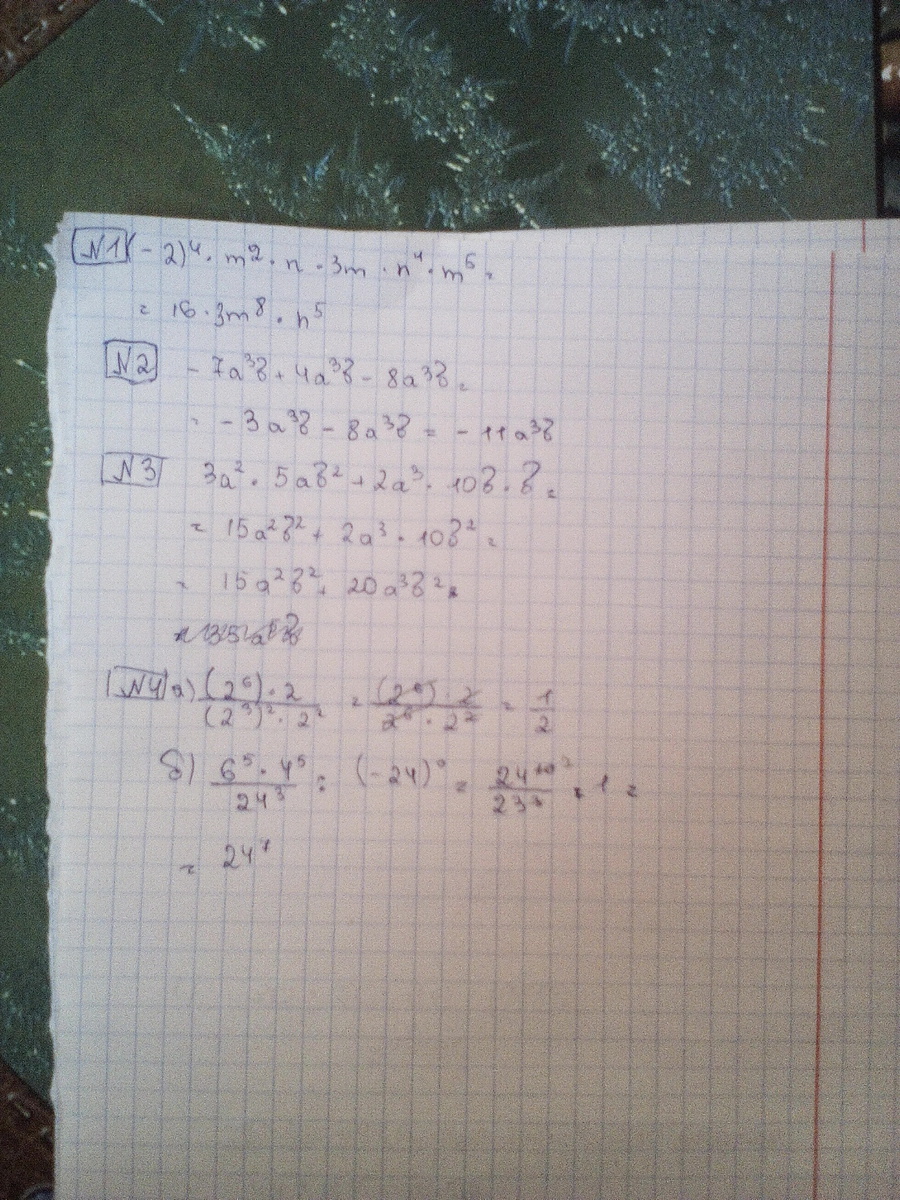 N1 (-2)⁴ · m² · n · 3m · n⁴ · m⁵ =
= 16 · 3m⁸ · n⁵
N2 - 7a³b + 4a³b - 8a³b =
= - 3a³b - 8a³b = - 11a³b
N3 3a² · 5ab² + 2a³ · 10b · b =
= 15a²b² + 2a³ · 10b² =
= 15a²b² + 20a³b²
N4 а) (2⁶) · 2 / (2³)² · 2² = (2⁶) · 2 / 2⁶ · 2² = 1/2
б) 6⁵ · 4⁵ / 24³ : (-24)⁰ = 24¹⁰ / 23³ · 1 =
= 24⁷